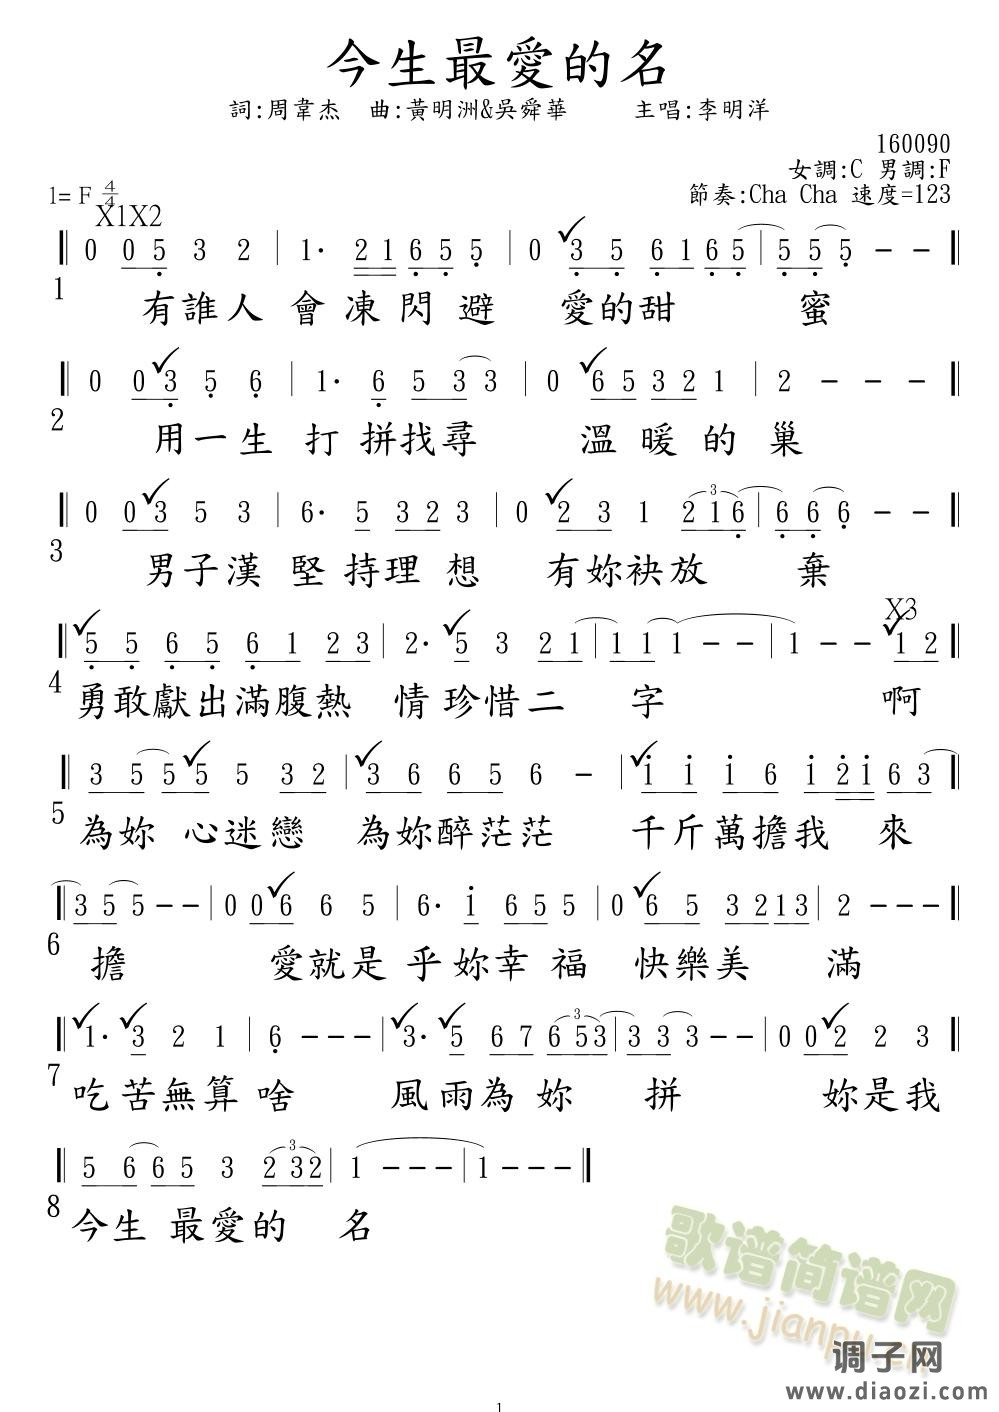 今生最愛的名
詞:周韋杰 曲:黃明洲&吳舜華 主唱:李明洋
160090
女調:C 男調:F
1= F 4/4 節奏:Cha Cha 速度=123
X1X2
‖ 0 0 5 3 2 | 1· 2 1 6 5 5 | 0 3 5 6 1 6 5 | 5 5 5 - - ‖
1 有誰人 會凍閃避 愛的甜 蜜
‖ 0 0 3 5 6 | 1· 6 5 3 3 | 0 6 5 3 2 1 | 2 - - - ‖
2 用一生 打拼找尋 溫暖的巢
‖ 0 0 3 5 3 | 6· 5 3 2 3 | 0 2 3 1 2 1 6 | 6 6 6 - - ‖
3 男子漢 堅持理想 有妳袂放 棄
X3
‖ 5 5 6 5 6 1 2 3 | 2· 5 3 2 1 | 1 1 1 - - | 1 - - 1 2 ‖
4 勇敢獻出滿腹熱 情珍惜二 字 啊
‖ 3 5 5 5 5 3 2 | 3 6 6 5 6 - | 1 1 1 6 1 2 1 6 3 ‖
5 為妳 心迷戀 為妳醉茫茫 千斤萬擔我 來
‖ 3 5 5 - - | 0 0 6 6 5 | 6· 1 6 5 5 | 0 6 5 3 2 1 3 | 2 - - - ‖
6 擔 愛就是 乎妳幸福 快樂美 滿
‖ 1· 3 2 1 | 6 - - - | 3· 5 6 7 6 5 3 | 3 3 3 - - | 0 0 2 2 3 ‖
7 吃苦無算 啥 風雨為妳 拼 妳是我
‖ 5 6 6 5 3 2 3 2 | 1 - - - | 1 - - - ‖
8 今生 最愛的 名
歌谱简谱网
www.jianpu.cn
调子网
www.diaozi.com
1